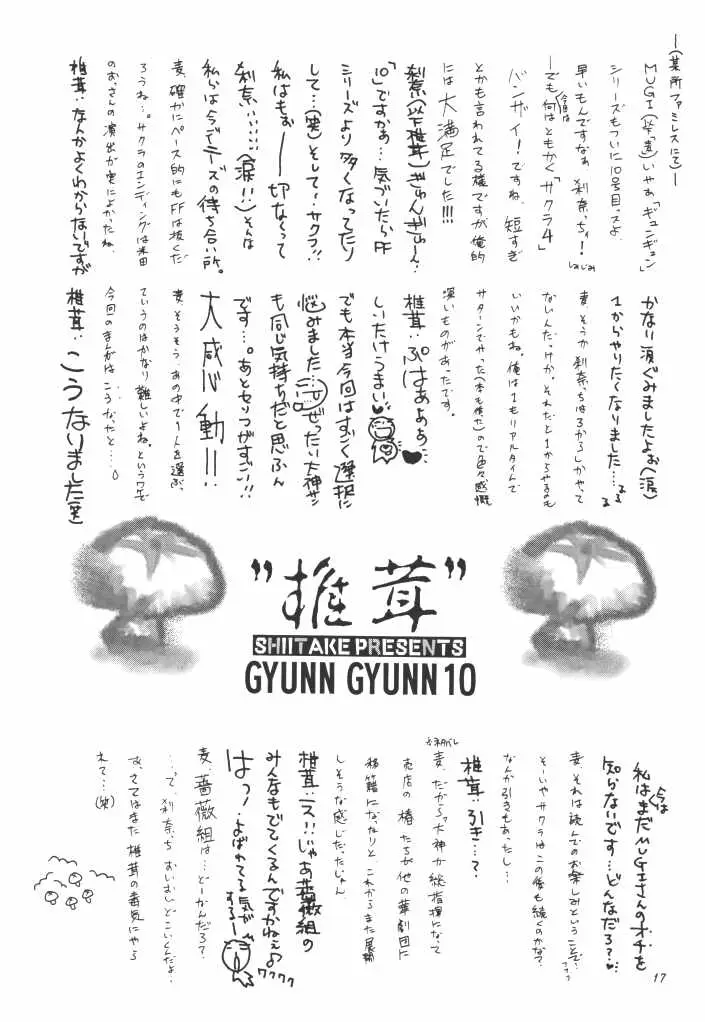 ―(某所ファミレスにて)―
MUGI(以下麦)いやぁ「ギュンギュン」
シリーズもついに10号目っスよ
早いもんですなぁ 刹奈っち!
―でも今回は何はともかく「サクラ4」
バンザイ!ですね、短すぎ
とかも言われてる様ですが俺的
には大満足でした!!!
刹奈(以下椎茸)ぎゅんぎゅ〜ん…
「10」ですかぁ…気づいたらFF
シリーズより多くなってたり
して…(笑)そして!サクラ!!
私はもぉ――切なくって
刹奈い……(涙!!)そんな
私らは今デニーズの待ち合い所。
麦、確かにペース的にもFFは抜くだ
ろうね…。サクラのエンディングは米田
のおっさんの演出が実によかったね、
椎茸:なんかよくわからないですが
かなり涙ぐみましたよぉ(涙)
1からやりたくなりました…
麦 そうか刹奈っちは3からしかやって
ないんだっけか。それだと1からやるのも
いいかもね。俺は1もリアルタイムで
サターンでやった(本も作った)ので色々感慨
深いものがあったです。
椎茸:ぷはぁぁぁ
しいたけうまい
でも本当今回はすごく選択に
悩みました…ぜったい大神サン
も同じ気持ちだと思ふん
です…。あとセリフがすごい!!
大感動!!
麦:そうそう、あの中で1人を選ぶ、
ていうのはかなり難しいよね。というワケで
今回のまんがはこうなったと…。
椎茸:こうなりました(笑)
”椎茸”
SHIITAKE PRESENTS
GYUNN GYUNN 10
私は今はまだMUGIさんのオチを
知らないです…どんなだろ?
麦 それは読んでのお楽しみということで…フフフ
そーいやサクラはこの後も続くのかな?
なんか引きもあったし…
椎茸:引き…?
麦:だからっ大神が総指揮になって
売店の椿たちが他の華劇団に
移籍になったりと これからまた展開
しそうな感じだったじゃん
椎茸:えっ!!じゃあ薔薇組の
みんなもでてくるんですかねぇ♪
ワクワク
はっ!よばれてる気が
するー
麦:薔薇組は…どーかんだろ?
…って、刹奈っち おいおいどこいくんだよ…
あ、さてはまた椎茸の毒気にやら
れて…(笑)
17